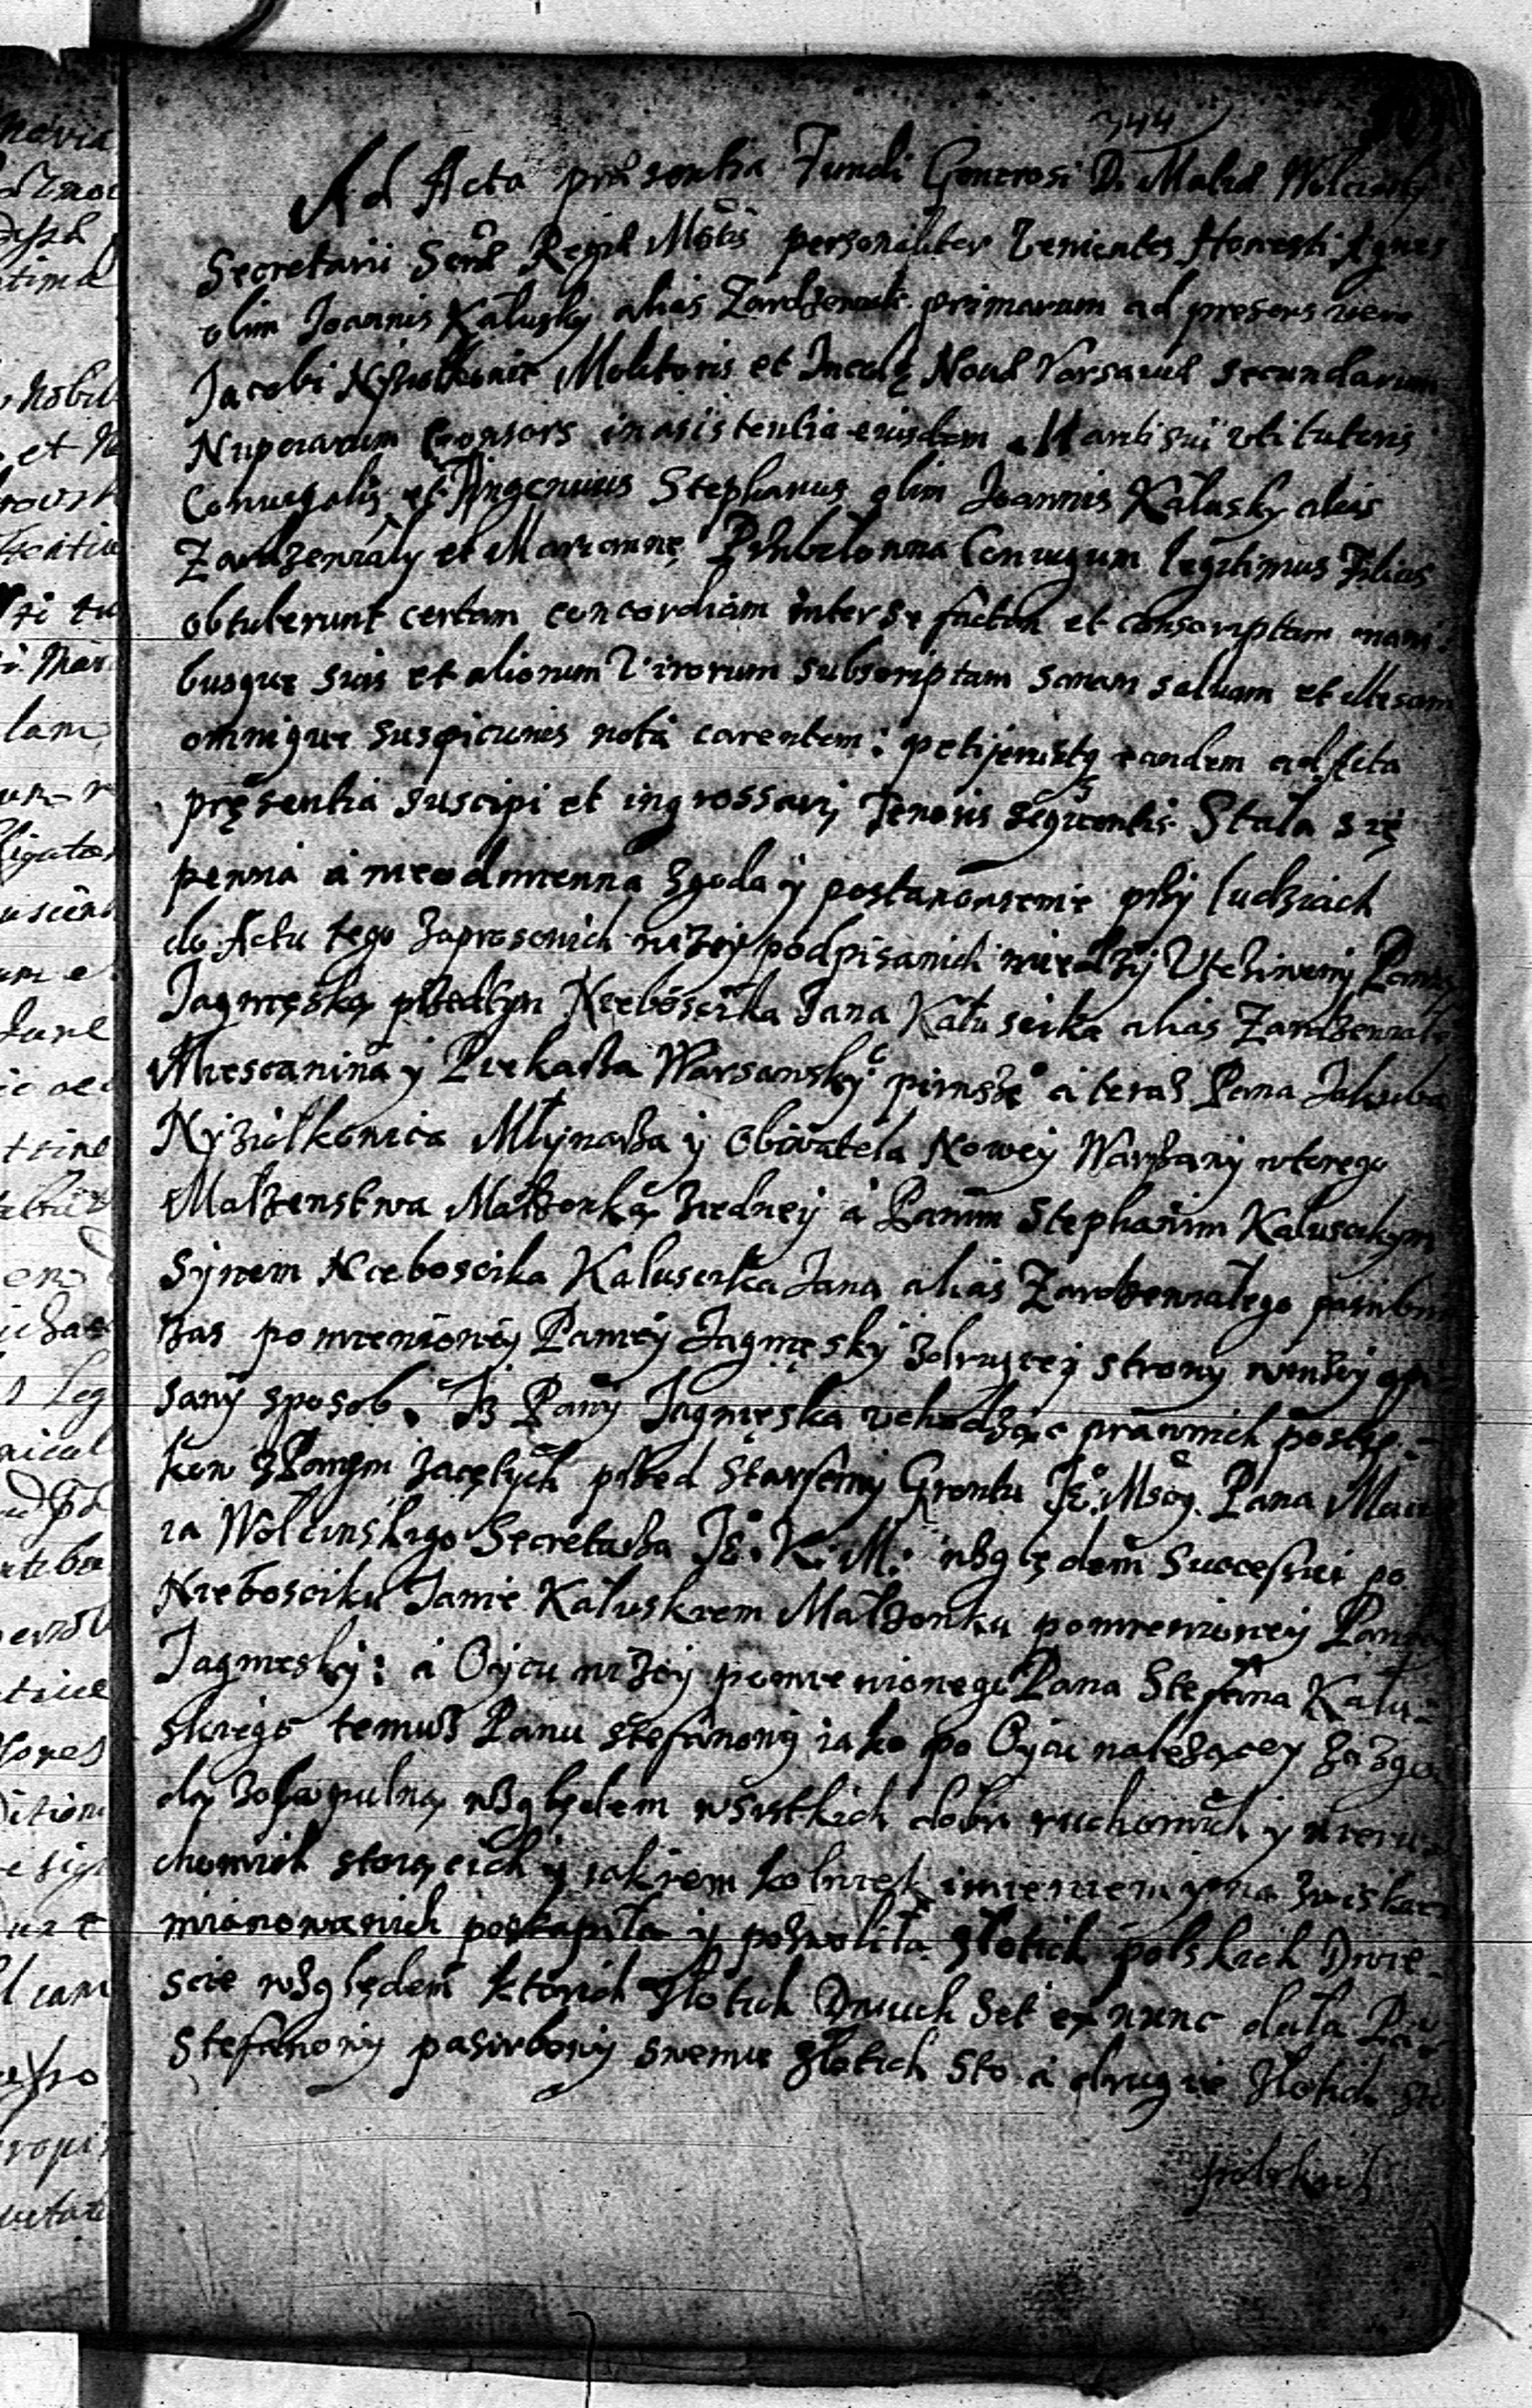 344
Ad Acta præsentia Fundi Generosi D. Mathæ Wolcinsky
Secretarii Sere Regiæ Mttis personaliter venientes Honesti Agnes
olim Joannis Kałusky alias Zardzewiały primarum ad presens vero
Jacobi Nyziołkowic Molitoris et Incolę Novæ Varsaviæ secundarum
Nuptiarum Consors in asistentia eiusdem Mariti sui uti tutoris
Coniugalis et Ingenuus Stephanus olim Joannis Kałusky alias
Zardzewiały et Mariannę Coniugum legitimus Filius
obtulerunt certam concordiam inter se factam et conscriptam mani-
busque suis et aliorum Virorum subscriptam sanam saluam et illesam
omnique suspicionis nota carentem: petijeruntq eandem ad Acta
pręsentia suscipi et ingrossari, Tenoris seqventis. Stała się
pewna a nieodmienna zgoda y postanowienie przy ludziach
do Actu tego zaproszonich niżey podpisanich między Uczciwemi Panią
Jagnięską przedtym Nieboscika Jana Kałuscika alias Zardzewiałe
Miescanina y Piekarza Warsawsky pirwszę a teraz Pana Jakuba
Nyziołkowica Młynarza y Obiwatela Nowey Warszawy wtorego
Małzenstwa Małzonką z iedney a Panem Stephanem Kałuscikym
Synem Nieboscika Kałuscika Jana alias Zardzewiałego pasirbem
zas pomienioney Paniey Jagnięsky z drugiey strony w niżey opi-
sany sposob. Iz Pani Jagnięska uchodząc prawnich postęp-
kow z Panem zacętych przed Starszemi Gruntu Je: Msci. Pana Macie
ia Wolcinskiego Secretarza Je: K: M: względem Successiei po
Niebościku Janie Kałuskiem Małzonku pomienioney Paniey
Jagniesky: a Oycu niżey pomienionego Pana Stefana Kału-
skiego temuz Panu Stefanowy iako po Oycu nalezącey za zgo
dą zobopulną względem wsistkich dobr ruchomich y nieru-
chomich stoiących y iakiem kolwiek imieniem y nazwiskiem
mianowanich postąpiła y pozwoliła złotich polskich Dwie-
scie względem ktorich złotich Dwuch Set ex nunc dała Pa:
Stefanowy pasirbowy swemu złotich sto a drugie złotich sto
polskich